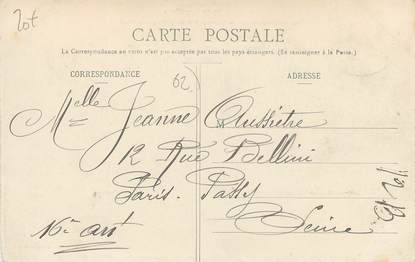 CARTE POSTALE
La Correspondance au verso n'est pas acceptée par tous les pays étrangers. (Se renseigner à la Poste.)
CORRESPONDANCE
ADRESSE
62
Melle Jeanne
M
12 Rue Bellini
Paris. Passy
Seine
16e arrt